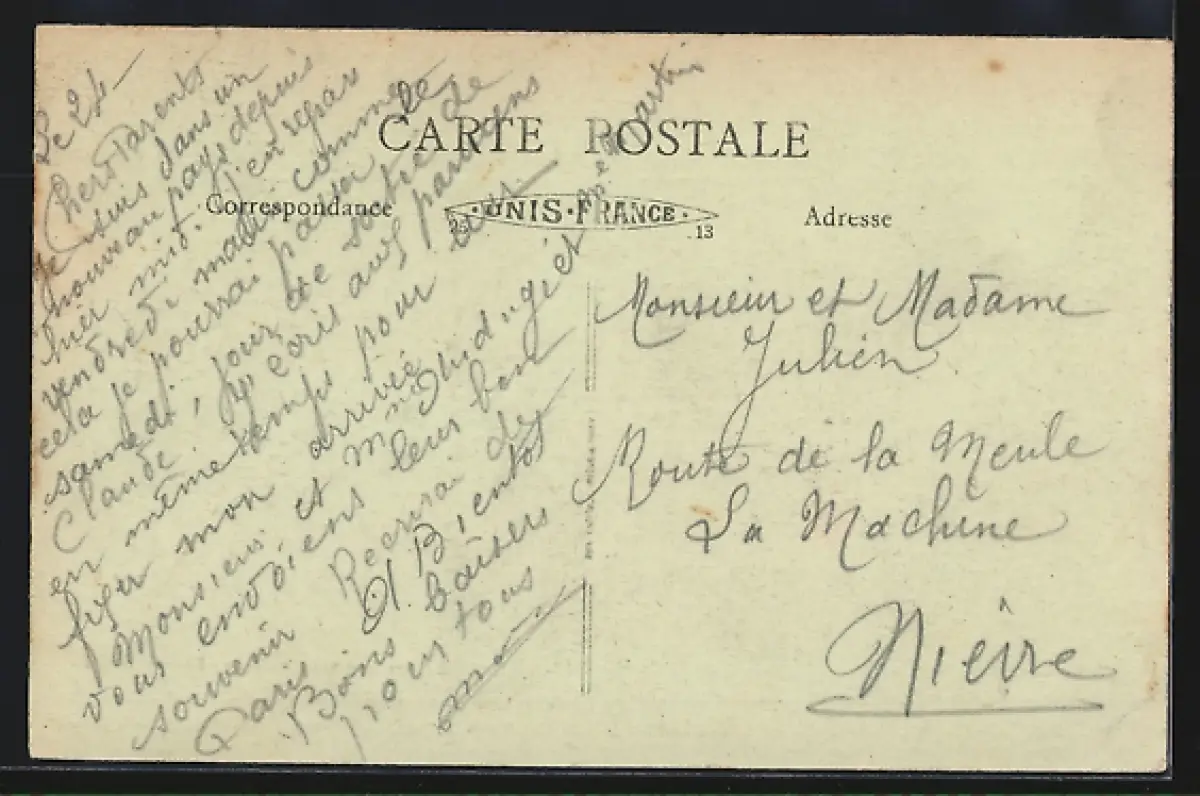 CARTE POSTALE
Correspondance
UNIS-FRANCE
13
Adresse
Le 24
Chers Parents
Je suis dans un
nouveau pays depuis
hier midi. J'en repars
vendredi matin comme
cela je pourrai passer le
samedi, jour de sortie de
Claude. J'écris aux
en même temps pour
fixer mon arrivée
Monsieur et et Martin
vous envoient leur bon
souvenir Recevrai de
Paris A Bientôt
Bons baisers
pour tous
Monsieur et Madame
Julien
Route de la Meule
La Machine
Nièvre